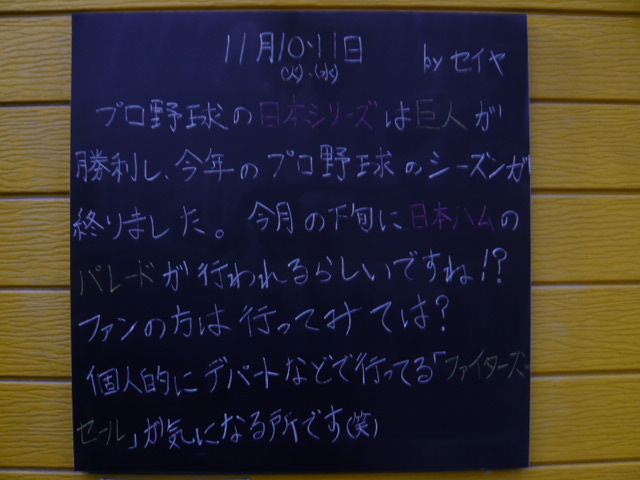 11月10・11日
(火)・(水)
by セイヤ
プロ野球の日本シリーズは巨人が
勝利し、今年のプロ野球のシーズンが
終りました。今月の下旬に日本ハムの
パレードが行われるらしいですね!?
ファンの方は行ってみては?
個人的にデパートなどで行ってる「ファイターズ
セール」が気になる所です(笑)